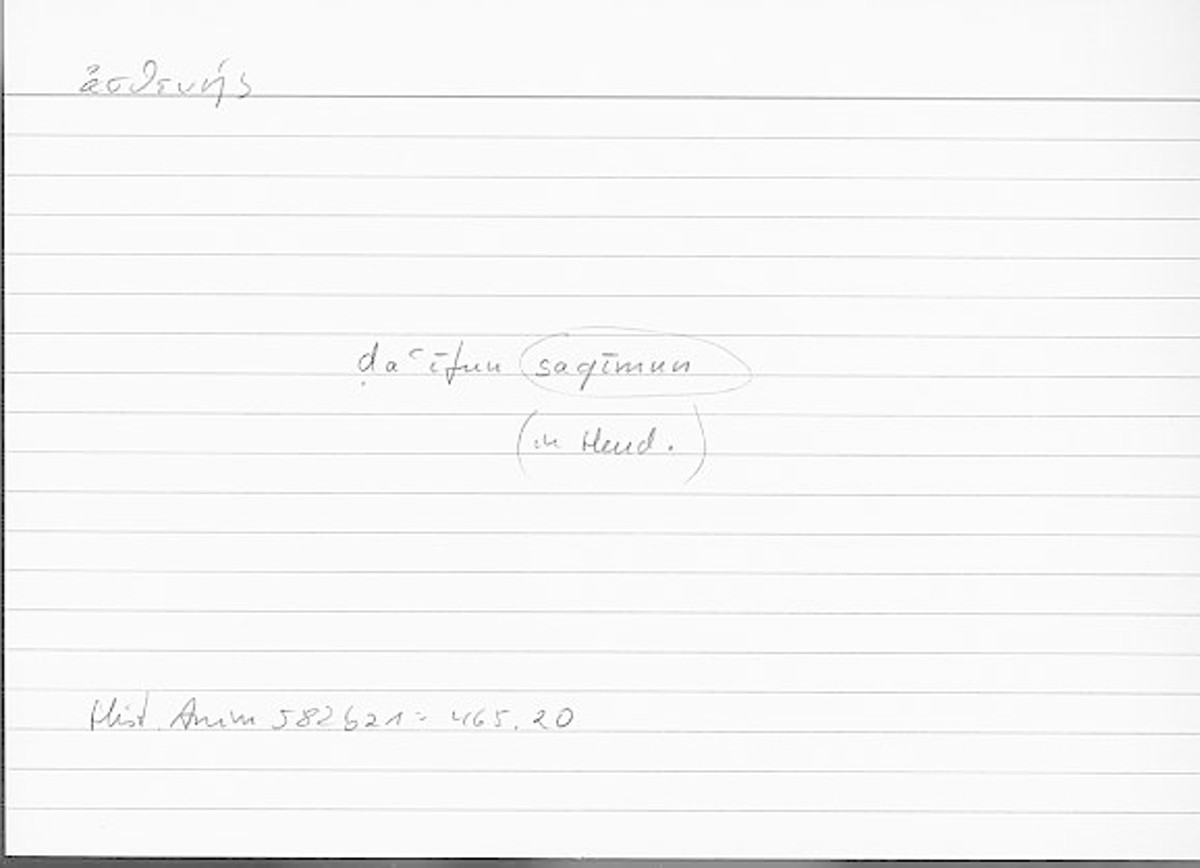 ἀσθενής
ḍaʿīfun saqīmun
(in Hend.)
Hist. Anim 582b21 = 465.20